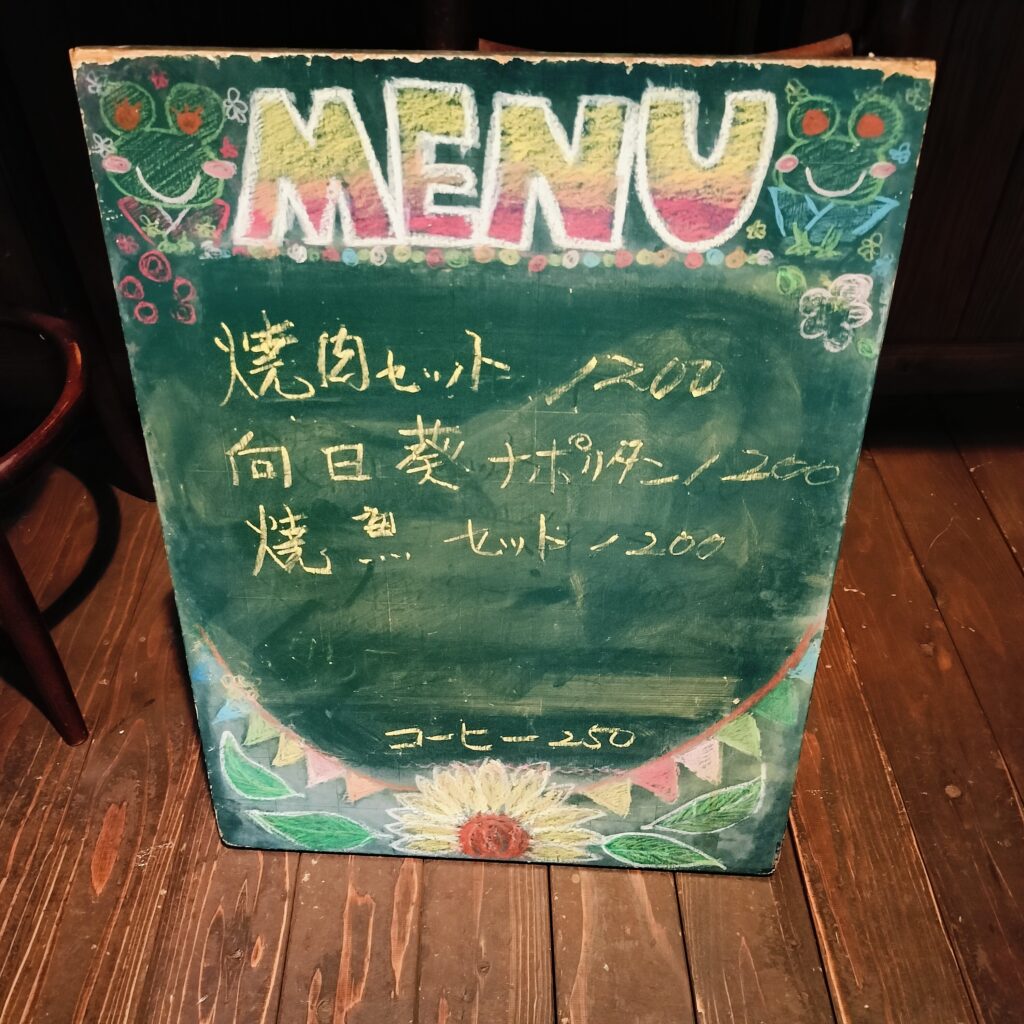 MENU
焼肉セット 1200
向日葵ナポリタン 1200
焼魚 セット 1200
コーヒー 250